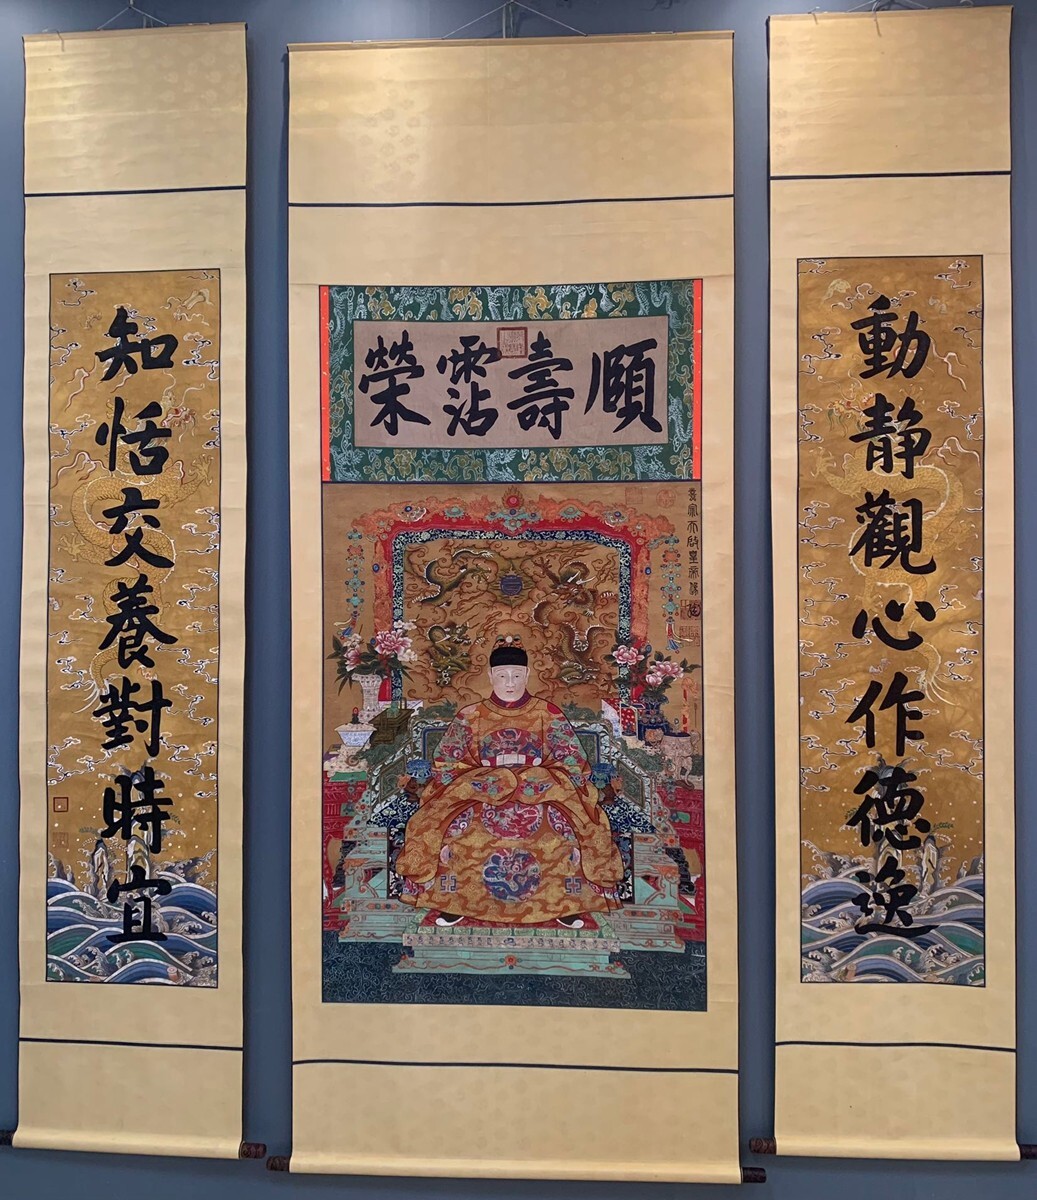 頤壽霑榮
動靜觀心作德逸
知恬交養對時宜